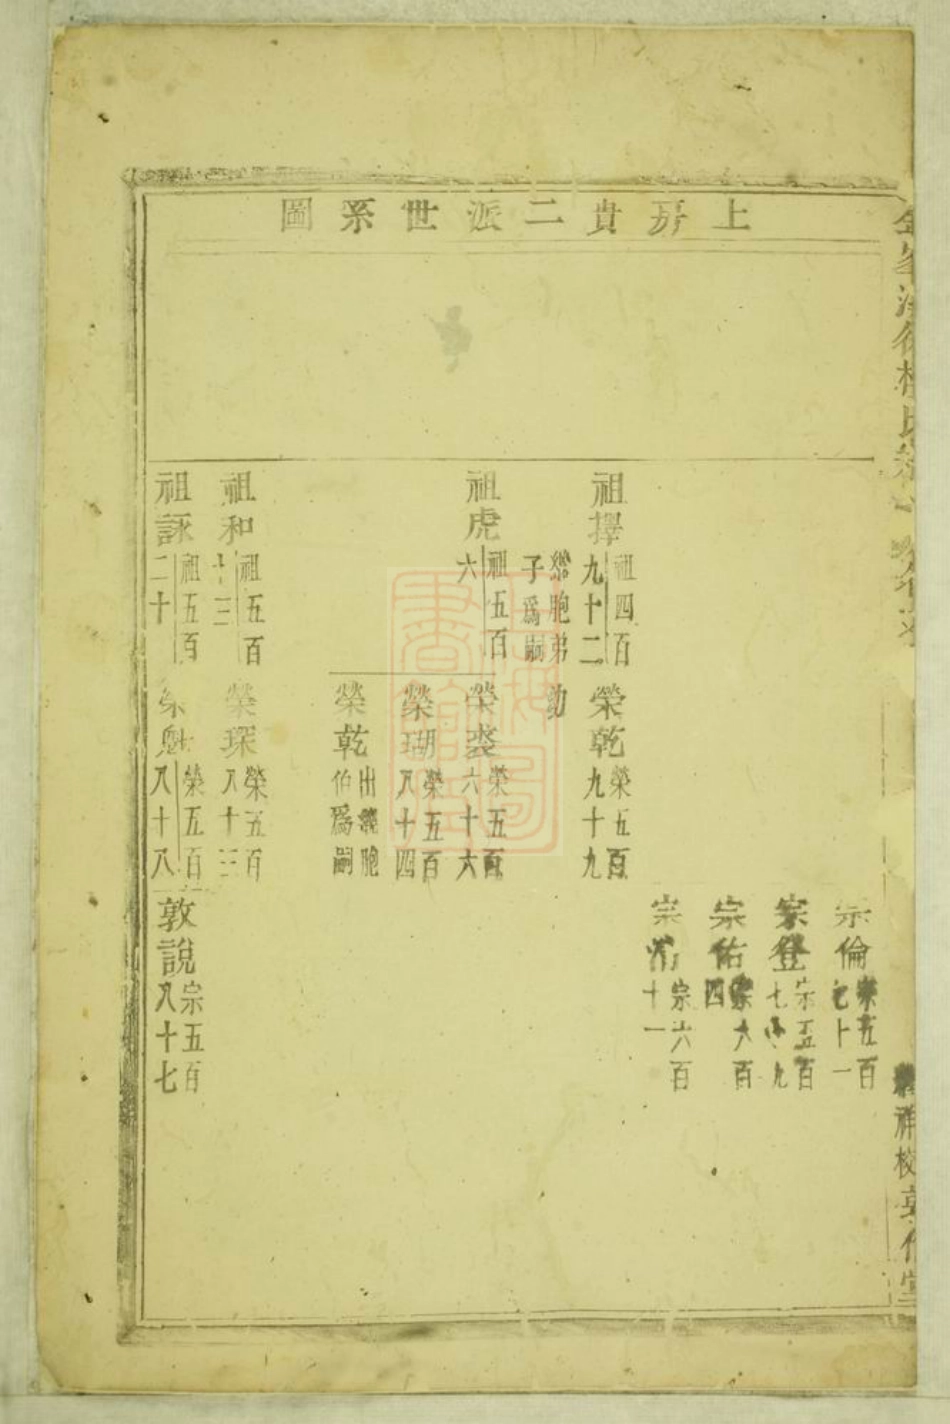 上房貴二派世系圖
宗倫
宗五百
七十一
宗登
宗五百
宗佑
宗六百
四
宗
宗六百
十一
祖擇
祖四百
九十二
胞弟
子爲嗣
榮乾
榮五百
九十九
祖虎
祖五百
六
榮裘
榮五百
六十六
榮瑚
榮五百
八十四
榮乾
出胞
伯爲嗣
祖和
祖五百
十三
榮琛
榮五百
八十三
祖詠
祖五百
二十
榮
榮五百
八十八
敦說
宗五百
八十七
祥校